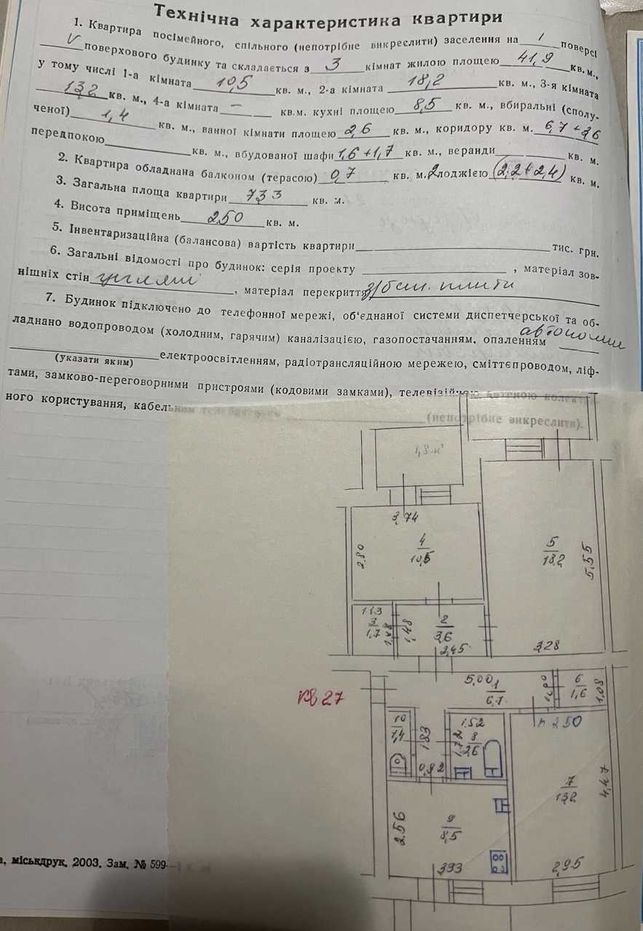 Технічна характеристика квартири
1. Квартира посімейного, спільного (непотрібне викреслити) заселення на 1 поверсі
V поверхового будинку та складається з 3 кімнат жилою площею 41,9 кв. м.,
у тому числі 1-а кімната 10,5 кв. м., 2-а кімната 18,2 кв. м., 3-я кімната
13,2 кв. м., 4-а кімната – кв.м. кухні площею 8,5 кв. м., вбиральні (сполу-
ченої) 1,4 кв. м., ванної кімнати площею 2,6 кв. м., коридору кв. м. 6,7 + 3,6
передпокою кв. м., вбудованої шафи 1,6 + 1,7 кв. м., веранди кв. м.
2. Квартира обладнана балконом (терасою) 0,7 кв. м. 2 лоджією (2,2+2,4) кв. м.
3. Загальна площа квартири 73,3 кв. м.
4. Висота приміщень 2,50 кв. м.
5. Інвентаризаційна (балансова) вартість квартири тис. грн.
6. Загальні відомості про будинок: серія проекту , матеріал зов-
нішніх стін цегляні , матеріал перекриття з/бет. плити
7. Будинок підключено до телефонної мережі, об'єднаної системи диспетчерської та об-
ладнано водопроводом (холодним, гарячим) каналізацією, газопостачанням, опаленням автономн
електроосвітленням, радіотрансляційною мережею, сміттєпроводом, ліф-
(указати яким)
тами, замково-переговорними пристроями (кодовими замками), телевізійною антеною колекти-
вного користування, кабельним
(непотрібне викреслити).
1,8 м²
3,74
2,80
4
10,5
5
18,2
5,55
3,28
1,13
3
1,7
1,48
1,48
2
3,6
2,45
кв 27
5,00
1
6,7
1,00
6
1,6
1,08
h 2.50
10
1,4
1,83
0,82
1.52
8
2,6
1,72
7
13,2
4,47
2,95
2,56
9
8,5
3,93
а, міськдрук, 2003. Зам. № 599—